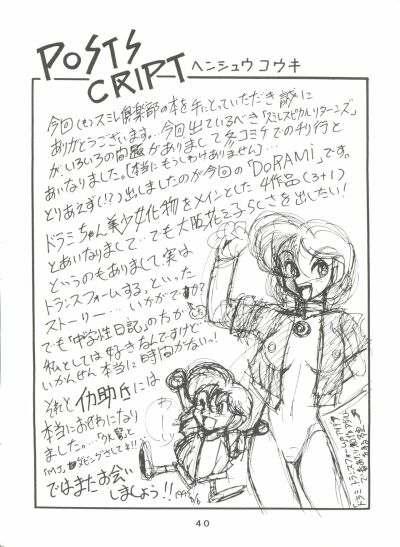 POSTS
CRIPT ヘンシュウコウキ
今回(も)スミレ倶楽部の本を手にとっていただき誠に
ありがとうございます。…今回出ているべき「スミレスピカルリターンズ」
がいろいろの問題がありまして冬コミケでの刊行と
あいなりました。[本当にもうしわけありません]…
とりあえず(!?)出しましたのが今回の「DoRAMi」です。
ドラミちゃん美少女化物をメインとした4作品(3+1)
とあいなりまして…でも大阪花子らしさを出したい!
というのもありまして実は
トランスフォームする、といった
ストーリー…いかがですか?
でも「中学性日記」の方が
私としては好きなんですけど
いかんせん本当に時間がない!
本当におせわになり
ました。…
では またお会い
しましょう!!
40